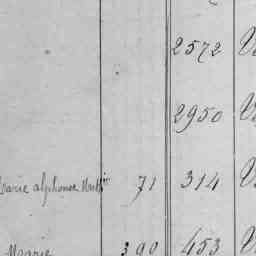 2572
2950
Marie alphonse 71 314
Marie 390 453